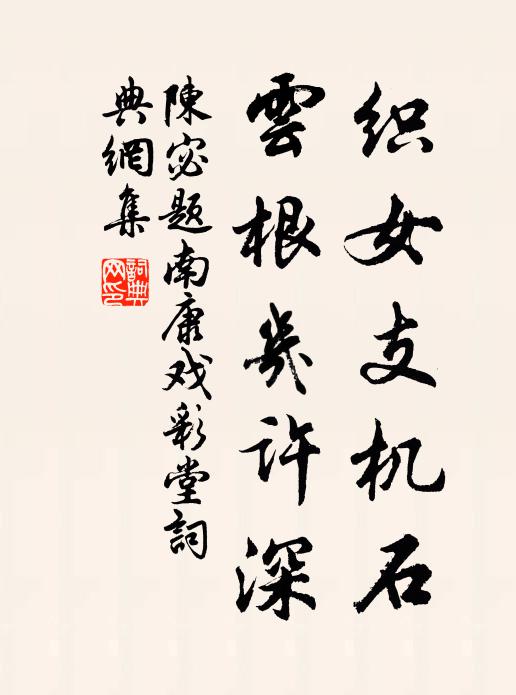 织女支机石
雲根幾许深
陳宓题南康戏彩堂詞
典網集
詞典
网印